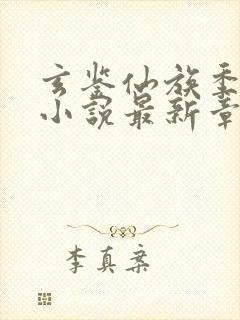 玄鉴仙族季
小说最新章
李真案